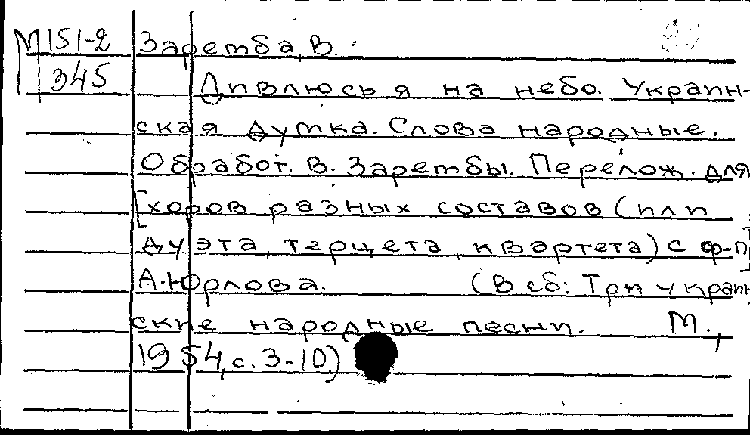 М151-2 Заремба, В.
345 Дивлюсь я на небо. Украин-
ская думка. Слова народные.
Обработ. В. Зарембы. Перелож. для
[хоров разных составов (или
дуэта, терцета, квартета) с ф-п]
А. Юрлова. (В сб: Три украин
ские народные песни. М.,
1954, с. 3-10)